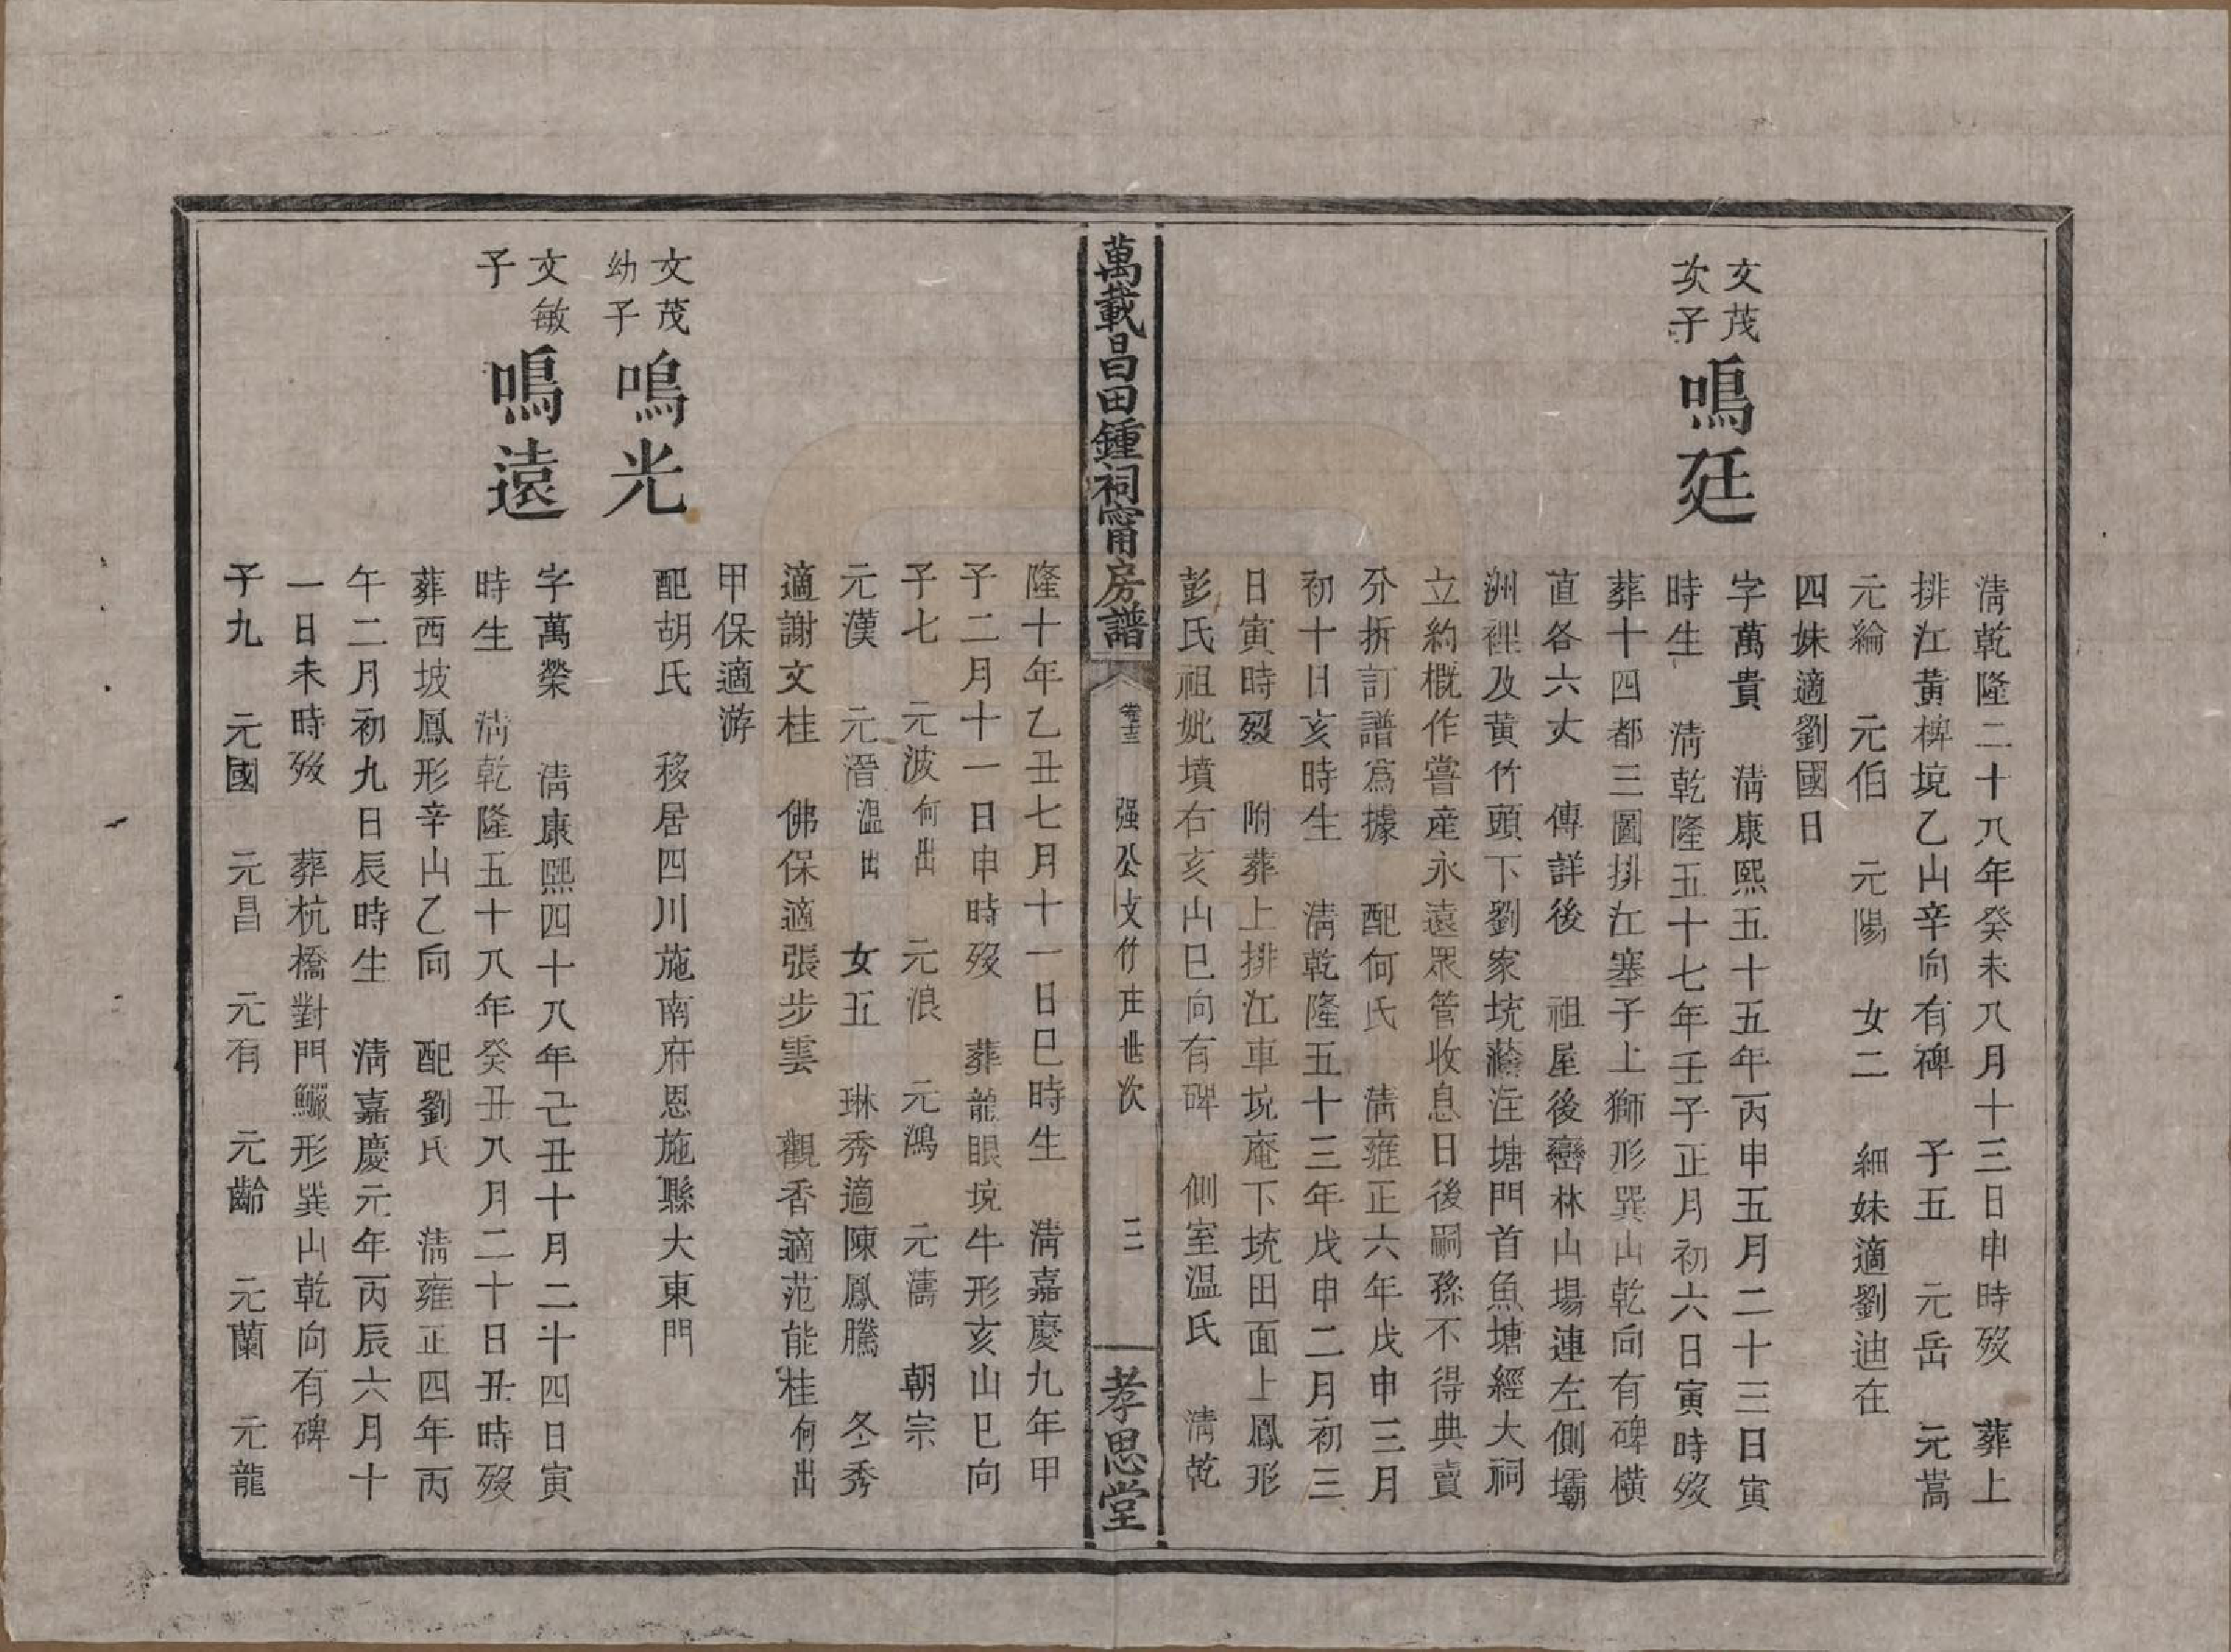 清乾隆二十八年癸未八月十三日申時歿　葬上
排江黃椑境乙山辛向有碑　子五　元岳　元嵩
元綸　元伯　元陽　女二　細妹適劉迪在
四妹適劉國日
文茂次子
鳴廷
字萬貴　清康熙五十五年丙申五月二十三日寅
時生　清乾隆五十七年壬子正月初六日寅時歿
葬十四都三圖排江塞子上獅形巽山乾向有碑橫
直各六丈　傳詳後　祖屋後巒林山場連左側壩
洲裡及黃竹頭下劉家坑蔭注塘門首魚塘經大祠
立約概作嘗產永遠眾管收息日後嗣孫不得典賣
分拆訂譜爲據　配何氏　清雍正六年戊申三月
初十日亥時生　清乾隆五十三年戊申二月初三
日寅時歿　附葬上排江車境庵下坑田面上鳳形
彭氏祖妣墳右亥山巳向有碑　側室温氏　清乾
萬載昌田鍾祠甯房譜　卷十三　强公支竹庄世次　三　孝思堂
隆十年乙丑七月十一日巳時生　清嘉慶九年甲
子二月十一日申時歿　葬龍眼境牛形亥山巳向
子七　元波何出　元浪　元鴻　元濤　朝宗
元漢　元溍温出　女五　琳秀適陳鳳騰　冬秀
適謝文桂　佛保適張步雲　觀香適范能桂何出
甲保適游
文茂幼子
鳴光
配胡氏　移居四川施南府恩施縣大東門
文敏子
鳴遠
字萬榮　清康熙四十八年己丑十月二十四日寅
時生　清乾隆五十八年癸丑八月二十日丑時歿
葬西坡鳳形辛山乙向　配劉氏　清雍正四年丙
午二月初九日辰時生　清嘉慶元年丙辰六月十
一日未時歿　葬杭橋對門鰍形巽山乾向有碑
子九　元國　元昌　元有　元齡　元蘭　元龍